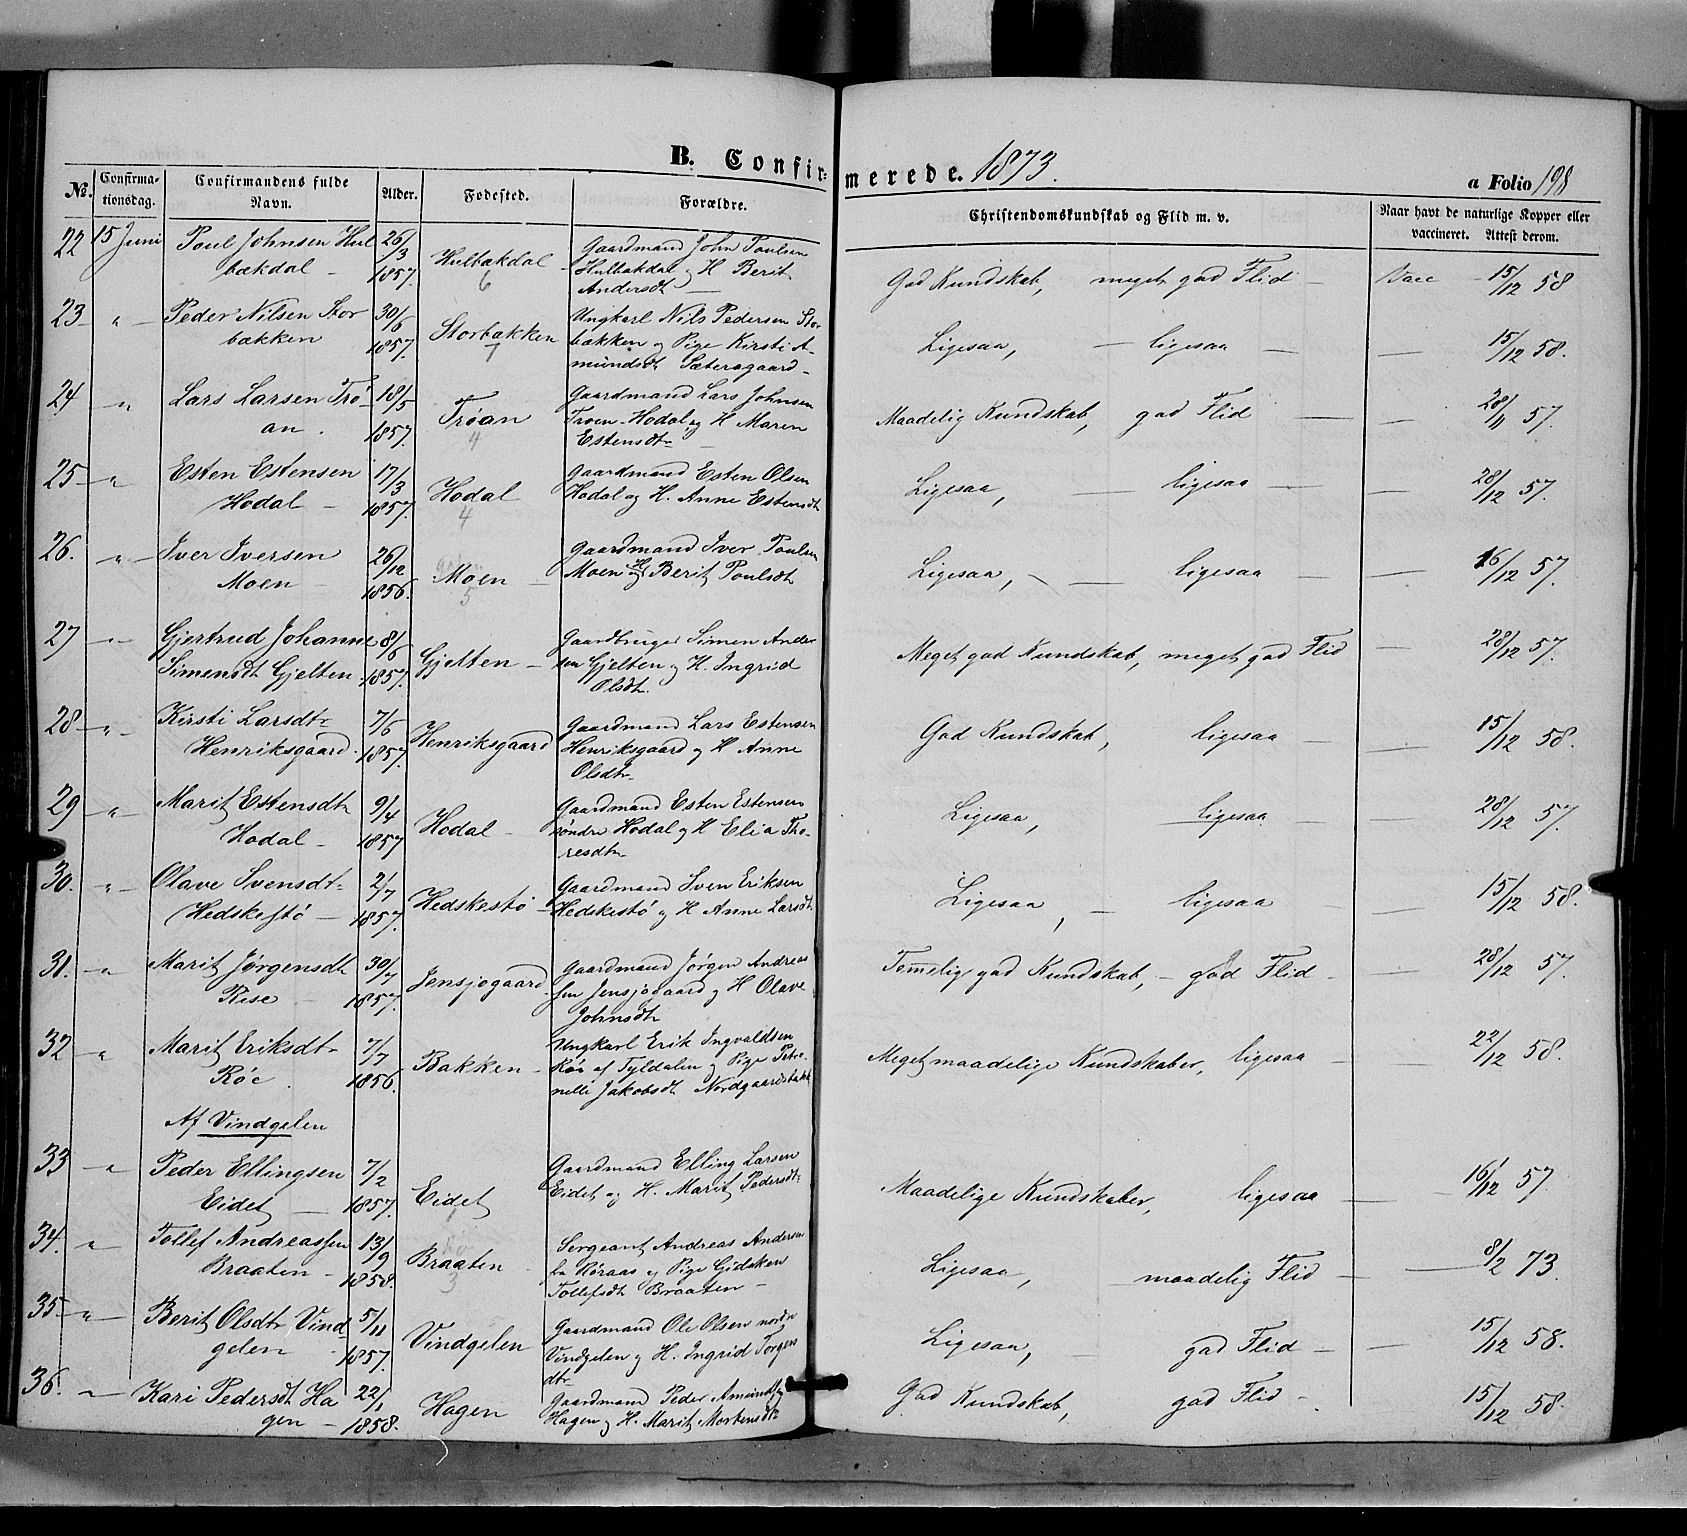 B. Confir- merede. 1873.
a Folio 198
№.
Confirma-
tionsdag.
Confirmandens fulde
Navn.
Alder.
Fødested.
Forældre.
Christendomskundskab og Flid m. v.
Naar havt de naturlige Kopper eller
vaccineret. Attest derom.
22 15 Juni Poul Johnsen Hul 26/3 Hulbækdal Gaardmand John Poulsen
bækdal - 1857. 6 Hulbækdal og H Berit
Andersdt
God Kundskab, meget god Flid - Vacc - 15/12 58
23 " Peder Nilsen Stor 30/6 Storbækken Ungkarl Nils Pedersen Stor
bækken 1857. 7 bækken og Pige Kirsti A-
mundsdt Sætersgaard -
Ligesaa, - ligesaa - 15/12 58.
24 " Lars Larsen Trø- 18/5 Trøan Gaardmand Lars Johnsen
an. 1857. 4 Troen-Hodal og H Maren
Estensdt
Maadelig Kundskab, god Flid - 28/11 57.
25 " Esten Estensen 17/3 Hodal Gaardmand Esten Olsen
Hodal - 1857. 4 Hodal og H. Anne Estensdt
Ligesaa, - ligesaa - 28/12 57.
26. " Iver Iversen 26/12 Moen Gaardmand Iver Poulsen
Moen 1856. 5 Moen og H Berit Poulsdt
Ligesaa, - ligesaa - 16/12 57.
27 " Gjertrud Johanne 8/6 Gjelten - Gaardbruger Simen Ander
Simensdt Gjelten 1857. sen Gjelten og H. Ingrid
Olsdt.
Meget god Kundskab, meget god Flid - 28/12 57.
28 " Kirsti Larsdt 7/6 Henriksgaard Gaardmand Lars Estensen
Henriksgaard. 1857. Henriksgaard og H Anne
Olsdt
God Kundskab, ligesaa - 15/12 58.
29 " Marit Estensdt 9/4 Hodal - Gaardmand Esten Estensen
Hodal - 1857 søndre Hodal og H Elia Tho-
resdt
Ligesaa, - ligesaa - 28/12 57.
30. " Olave Svensdt 2/7 Hedskestø Gaardmand Sven Eriksen
Hedskestø - 1857. Hedskestø og H Anne Larsdt
Ligesaa, - ligesaa - 15/12 58.
31. " Marit Jørgensdt 30/7 Jensjogaard Gaardmand Jørgen Andreas
Rise - 1857. sen Jensjogaard og H Olave
Johnsdt
Temmelig god Kundskab, - god Flid - 28/12 57.
32 " Marit Eriksdt 7/7 Bakken - Ungkarl Erik Ingvaldsen
Røe 1856. Røe af Tyldalen og Pige Petro-
nelle Jakobsdt Nordgaardsbakk
Meget maadelige Kundskaber, ligesaa - 22/12 58.
Af Vindgelen
33 " Peder Ellingsen 7/2 Eidet Gaardmand Elling Larsen
Eidet - 1857. Eidet og H. Marit Pedersdt
Maadelige Kundskaber, ligesaa - 16/12 57
34. " Tollef Andreassen 13/9 Braaten Sergeant Andreas Andersen
Braaten - 1858. 3 fra Røraas og Pige Gidsken
Tollefsdt Braaten -
Ligesaa, maadelig Flid - 8/2 73.
35 " Berit Olsdt Vind 5/11 Vindgelen Gaardmand Ole Olsen nordre
gelen - 1857. Vindgelen og H. Ingrid Torgers
dt
Ligesaa, - god Flid - 15/12 58.
36. " Kari Pedersdt Ha 22/1 Hagen Gaardmand Peder Amundsen
gen - 1858. Hagen og H. Marit Mortensdt
God Kundskab, god Flid - 15/12 58.